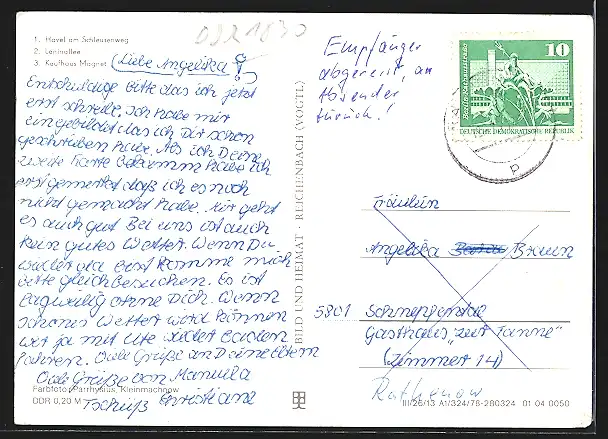 DDR 1830
1. Havel am Schleusenweg
2. Leninallee
3. Kaufhaus Magnet
Liebe Angelika!
Entschuldige bitte das ich jetzt
erst schreibe. Ich habe mir
eingebildet das ich Dir schon
geschrieben habe. Als ich Deine
zweite Karte bekamm habe ich
erst gemerkt daß ich es noch
nicht gemacht habe. Mir geht
es auch gut Bei uns ist auch
kein gutes Wetter. Wenn Du
wieder da bist komme mich
bitte gleich besuchen. Es ist
langweilig ohne Dich. Wenn
schones Wetter wird können
wir ja mit Ute wieder baden
fahren. Viele Grüße an Deine Eltern
Viele Grüße von Manuela
Tschüß Christiane
Farbfoto: Parrhysius, Kleinmachnow
DDR 0,20 M
BILD UND HEIMAT · REICHENBACH (VOGTL)
Empfänger
abgereist, an
Absender
zurück!
10
DEUTSCHE DEMOKRATISCHE REPUBLIK
Fräulein
Angelika Braun
5801 Schnepfenthal
Gasthaus „zur Tanne"
(Zimmer 14)
Rathenow
III/26/13 A1/324/78-280324 01 04 0050